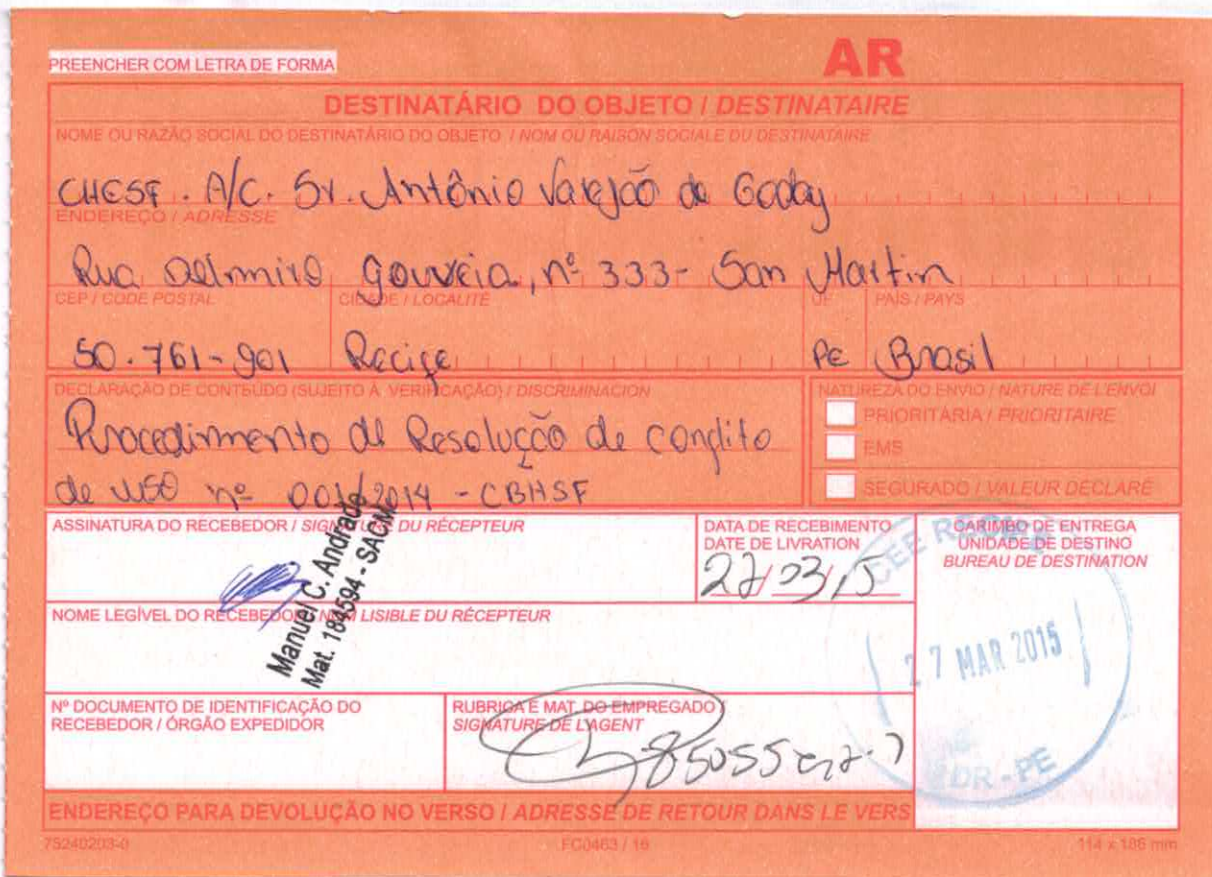 PREENCHER COM LETRA DE FORMA
AR
DESTINATÁRIO DO OBJETO / DESTINATAIRE
NOME OU RAZÃO SOCIAL DO DESTINATÁRIO DO OBJETO / NOM OU RAISON SOCIALE DU DESTINATAIRE
CHESF. A/C. Sr. Antônio Varejão de Godoy
ENDEREÇO / ADRESSE
Rua Delmiro Gouveia, nº 333- San Martin
CEP / CODE POSTAL CIDADE / LOCALITÉ UF PAÍS / PAYS
50.761-901 Recife PE Brasil
DECLARAÇÃO DE CONTEÚDO (SUJEITO À VERIFICAÇÃO) / DISCRIMINACION
NATUREZA DO ENVIO / NATURE DE L'ENVOI
PRIORITÁRIA / PRIORITAIRE
EMS
SEGURADO / VALEUR DÉCLARÉ
Procedimento de Resolução de conflito
de uso nº 001/2014 - CBHSF
ASSINATURA DO RECEBEDOR / SIGNATURE DU RÉCEPTEUR
Manuel C. Andrade
Mat. 184594 - SACM
DATA DE RECEBIMENTO
DATE DE LIVRATION
27/03/15
CARIMBO DE ENTREGA
UNIDADE DE DESTINO
BUREAU DE DESTINATION
CEE RECIFE
27 MAR 2015
DR-PE
NOME LEGÍVEL DO RECEBEDOR / NOM LISIBLE DU RÉCEPTEUR
Nº DOCUMENTO DE IDENTIFICAÇÃO DO
RECEBEDOR / ÓRGÃO EXPEDIDOR
RUBRICA E MAT. DO EMPREGADO /
SIGNATURE DE L'AGENT
ENDEREÇO PARA DEVOLUÇÃO NO VERSO / ADRESSE DE RETOUR DANS LE VERS
75240203-0 FC0463 / 16 114 x 186 mm